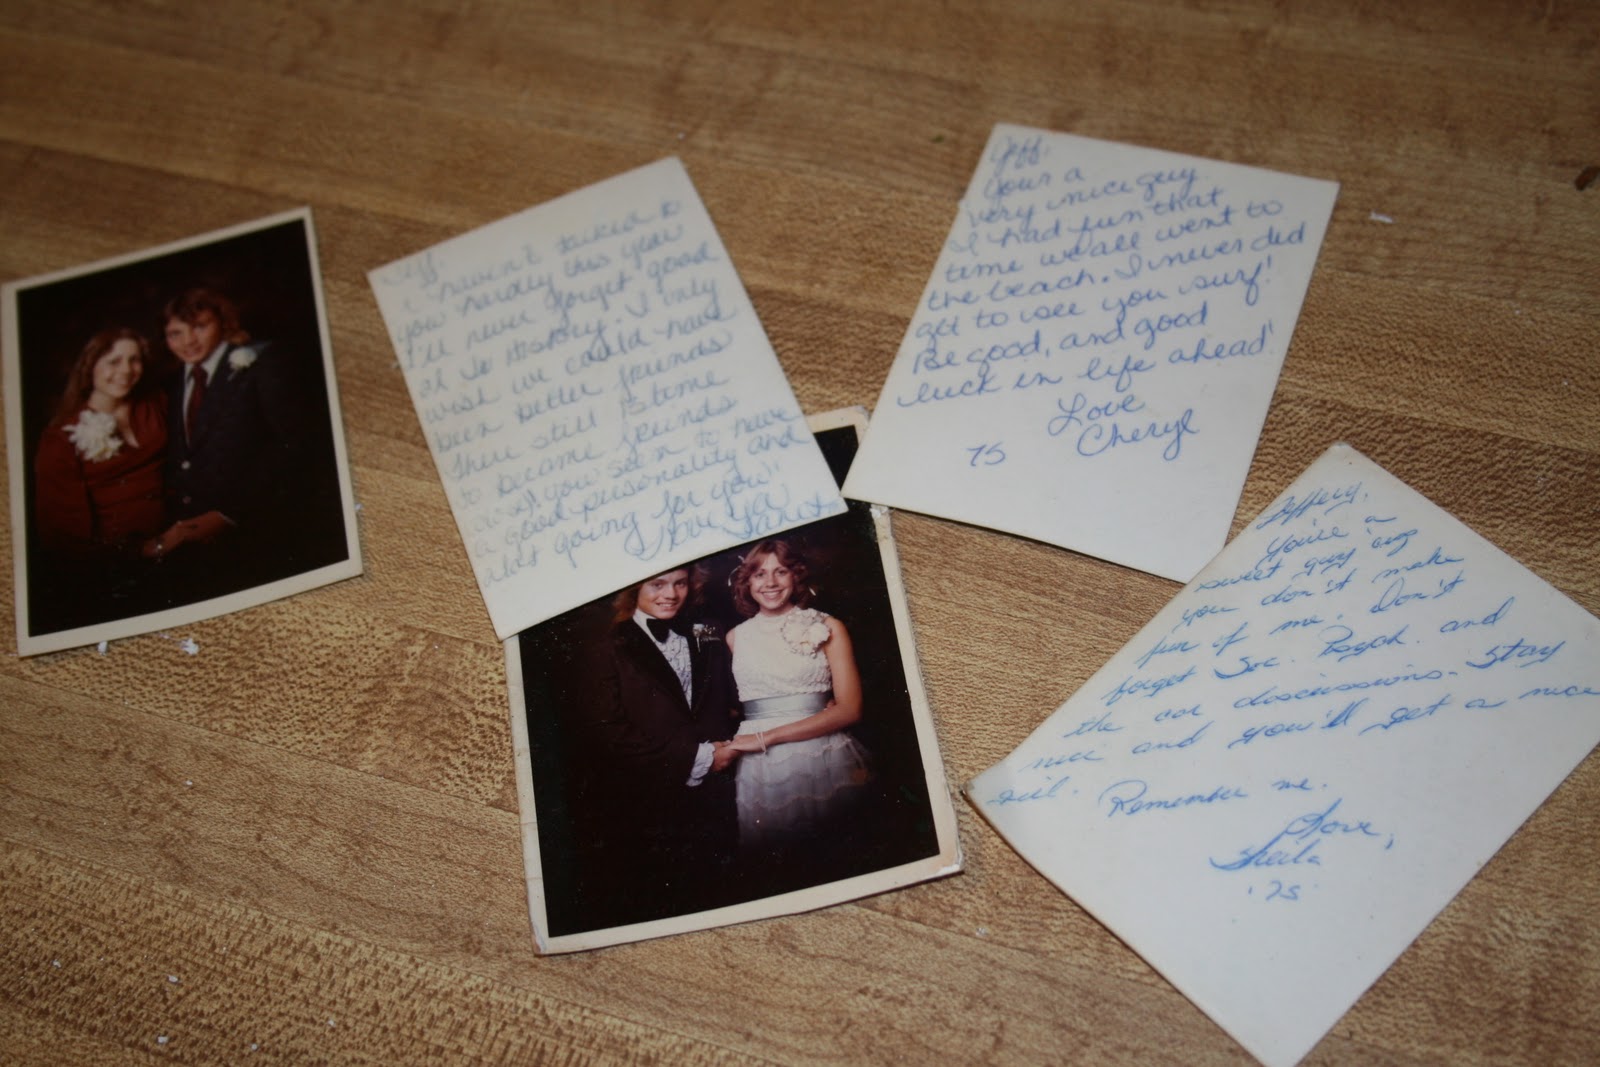 Jeff,
I haven't talked to
you hardly this year
I'll never forget good
oh So History. I only
wish we could have
been better friends
There still is time
to become friends
a good personality and
alot going for you!
Love Ya
Janet
Jeff,
Your a
very nice guy.
I had fun that
time we all went to
the beach. I never did
get to see you surf!
Be good, and good
luck in life ahead!
Love
Cheryl
75
Jeffery,
You're a
sweet guy 'cuz
you don't make
fun of me. Don't
forget Soc. Psych. and
the car discussions. Stay
nice and you'll get a nice
girl. Remember me.
Love,
Sheila
'75